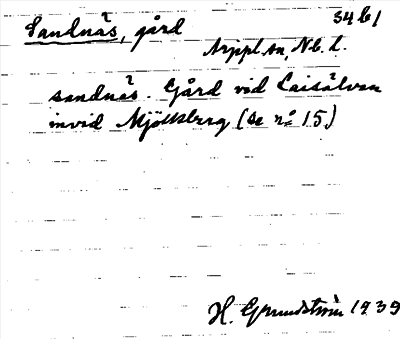 Sandnäs, gård 34 b 1
Arjepl. sn, Nb. L.
sandnäs. Gård vid Laisälven
invid Mjölkberg (se nº 15)
H. Grundström 1939